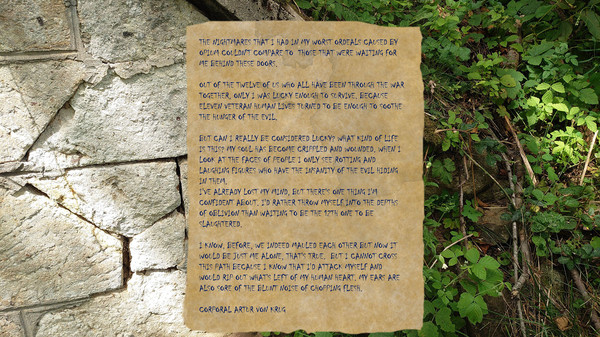 THE NIGHTMARES THAT I HAD IN MY WORST ORDEALS CAUSED BY
OPIUM COULDN'T COMPARE TO THOSE THAT WERE WAITING FOR
ME BEHIND THESE DOORS.
OUT OF THE TWELVE OF US WHO ALL HAVE BEEN THROUGH THE WAR
TOGETHER, ONLY I WAS LUCKY ENOUGH TO SURVIVE, BECAUSE
ELEVEN VETERAN HUMAN LIVES TURNED TO BE ENOUGH TO SOOTHE
THE HUNGER OF THE EVIL.
BUT CAN I REALLY BE CONSIDERED LUCKY? WHAT KIND OF LIFE
IS THIS? MY SOUL HAS BECOME CRIPPLED AND WOUNDED, WHEN I
LOOK AT THE FACES OF PEOPLE I ONLY SEE ROTTING AND
LAUGHING FIGURES WHO HAVE THE INSANITY OF THE EVIL HIDING
IN THEM.
I'VE ALREADY LOST MY MIND, BUT THERE'S ONE THING I'M
CONFIDENT ABOUT. I'D RATHER THROW MYSELF INTO THE DEPTHS
OF OBLIVION THAN WAITING TO BE THE 12TH ONE TO BE
SLAUGHTERED.
I KNOW, BEFORE, WE INDEED MAULED EACH OTHER BUT NOW IT
WOULD BE JUST ME ALONE, THAT'S TRUE. BUT I CANNOT CROSS
THIS PATH BECAUSE I KNOW THAT I'D ATTACK MYSELF AND
WOULD RIP OUT WHAT'S LEFT OF MY HUMAN HEART, MY EARS ARE
ALSO SORE OF THE BLUNT NOISE OF CHOPPING FLESH.
CORPORAL ARTUR VON KRUG